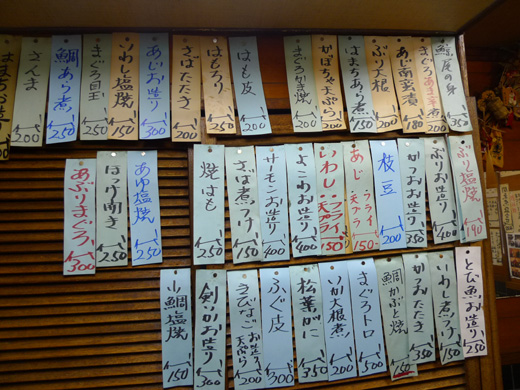 鯛尾の身 350
まぐろ 200
あじ南蛮漬 180
ぶり大根 200
はまちあら煮 150
かぼちゃ天ぷら 200
まぐろかき焼 200
はも皮 200
はもろり 250
さばたたき 200
あじお造り 300
いわし塩焼 150
まぐろ目玉 250
鯛あら煮 250
さんま 200
はまちお造り
ぶり塩焼 190
ぶりお造り 400
かつおお造り 350
枝豆 200
あじ フライ 天プラ 150
いわし フライ 天プラ 150
よこわお造り 400
サーモンお造り 400
さば煮つけ 150
焼はも 250
あゆ塩焼 250
ほっけ開き 250
あぶりまぐろ 300
とび魚お造り 250
いわし煮つけ 150
かつおたたき 350
鯛かぶと焼 150
まぐろトロ 500
いか大根煮 200
松葉がに 350
ふぐ皮 300
きびなごお造り 天ぷら 200
剣いかお造り 300
小鯛塩焼 150